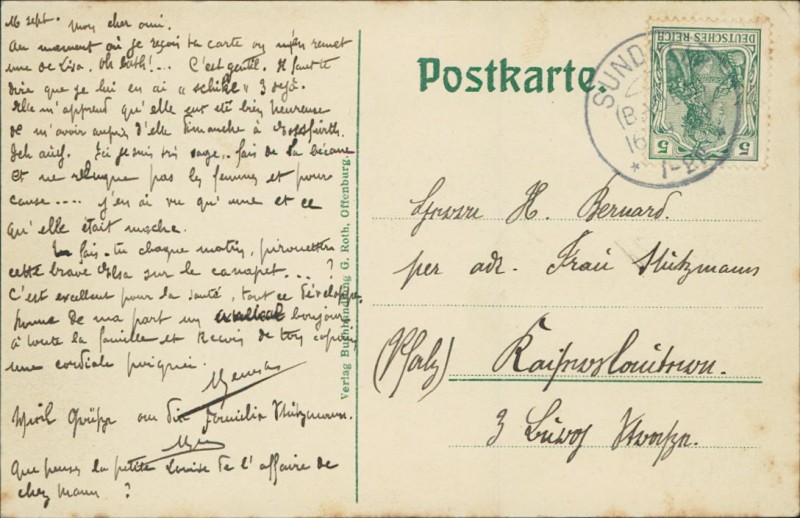 16 sept. Mon cher ami.
Au moment où je reçois ta carte on m'en remet
une de Lisa. Oh bath!... C'est gentil. Il faut te
dire que je lui en ai "schikt" 3 déjà.
Elle m'apprend qu'elle eut été bien heureuse
de m'avoir auprès d'elle Dimanche à
Ich auch. Ici je suis très sage, fais de la bécane
et ne reluque pas les femmes et pour
cause.... j'en ai vu qu'une et ce
qu'elle était moche.
fais-tu chaque matin, pirouetter
cette brave Elsa sur le canapet...?
C'est excellent pour la santé, tout ce développe.
Donne de ma part un bonjour
à toute la famille et Reçois de ton copain
une cordiale poignée.
Viele Grüsse an die Familie Stützmann.
Que penses la petite Louise de l'affaire de
chez Mann?
Verlag Buchhandlung G. Roth, Offenburg.
Postkarte.
DEUTSCHES REICH
5 5
SUND
16
* 1-2N
Herrn H. Bernard.
per adr. Frau Stützmann
(Pfalz) Kaiserslautern.
3 Strasse.